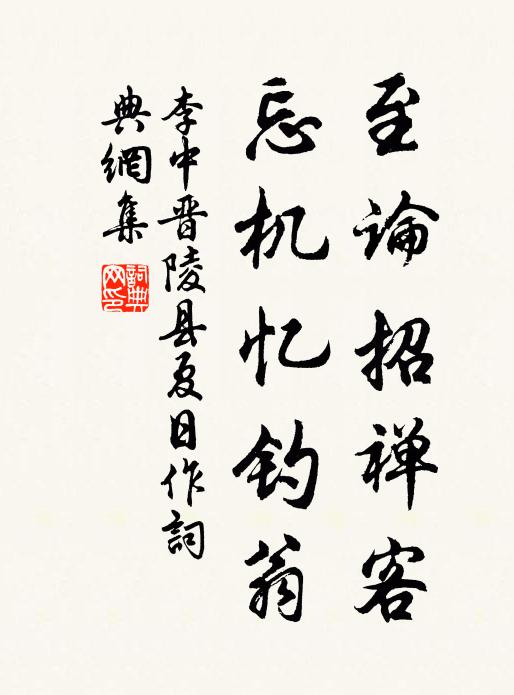 至論招禅客
忘机忆钓翁
李中晋陵县夏日作詞
典網集
詞典网印